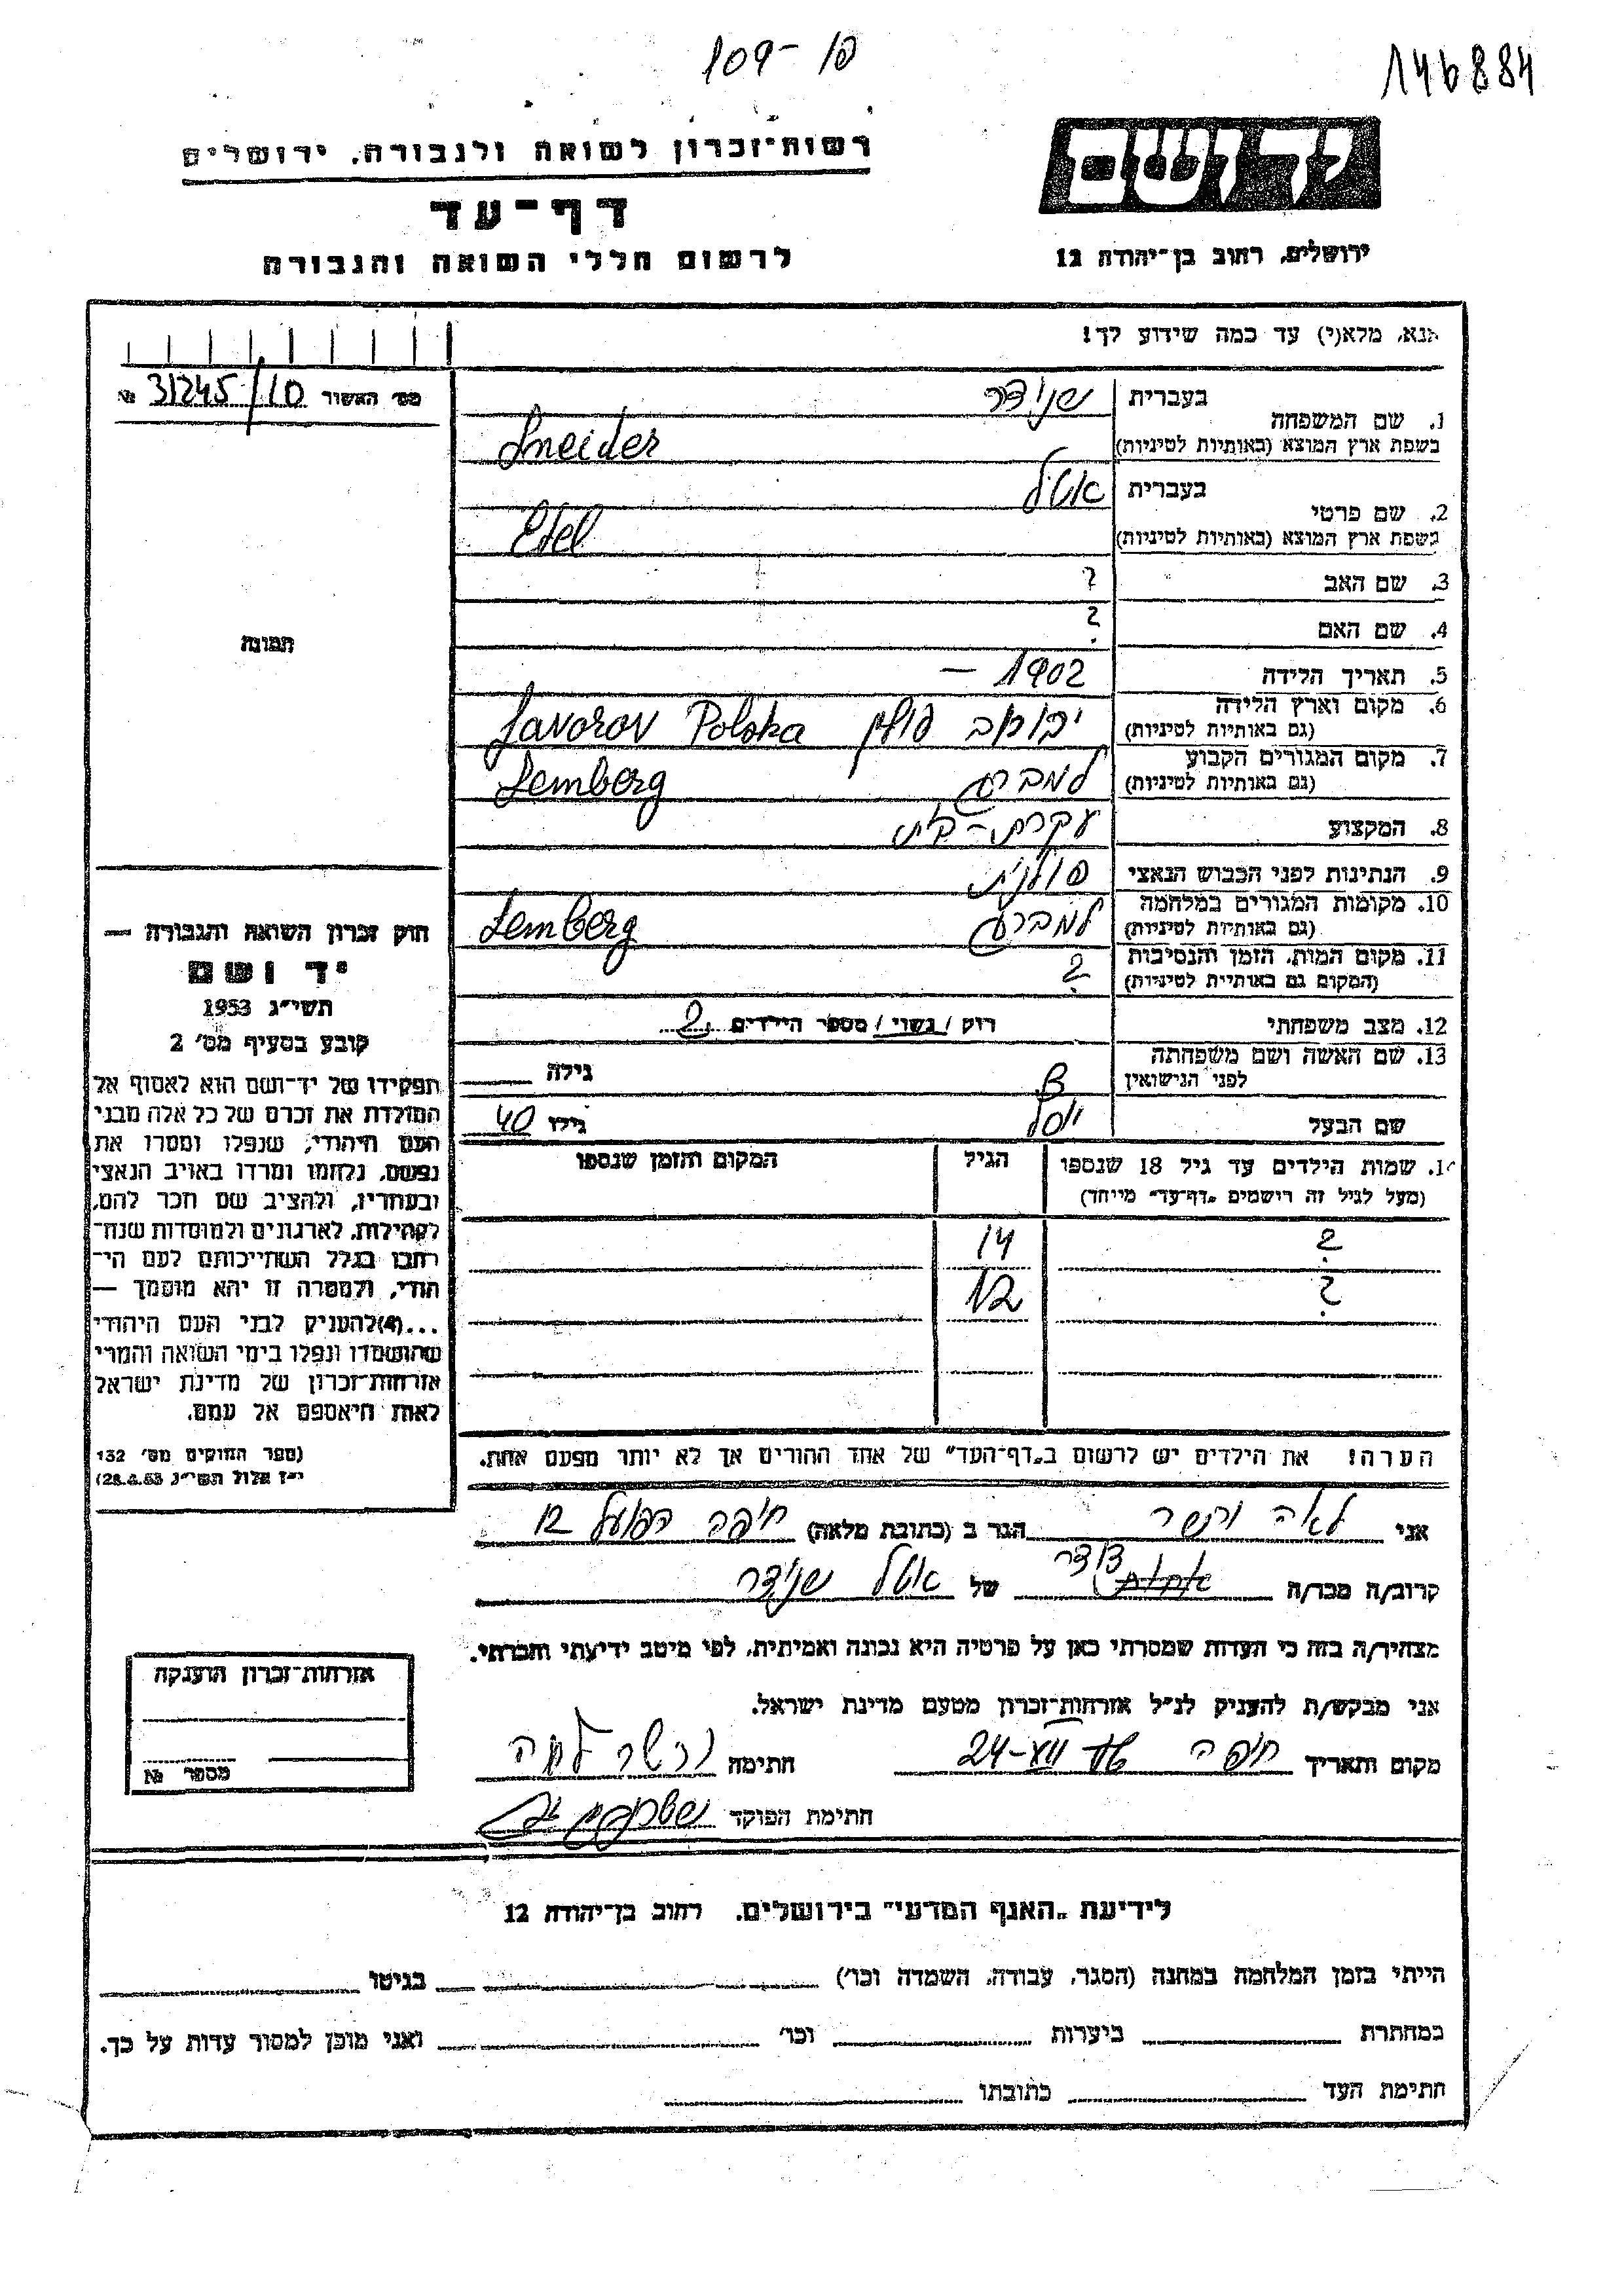 109-פ/
146884
רשות־זכרון לשואה ולגבורה, ירושלים
דף־עד
לרשום חללי השואה והגבורה
יד ושם
ירושלים, רחוב בן־יהודה 12
אנא, מלא(י) עד כמה שידוע לך!
מס׳ האשור 31245/10 №
1. שם המשפחה
בעברית שניידר
בשפת ארץ המוצא (באותיות לטיניות) Sneider
2. שם פרטי
בעברית אטל
בשפת ארץ המוצא (באותיות לטיניות) Etel
3. שם האב ?
4. שם האם ?
5. תאריך הלידה 1902 —
6. מקום וארץ הלידה
(גם באותיות לטיניות) יבורוב פולין Javorov Polska
7. מקום המגורים הקבוע
(גם באותיות לטיניות) למברג Lemberg
8. המקצוע עקרת-בית
9. הנתינות לפני הכבוש הנאצי פולנית
10. מקומות המגורים במלחמה
(גם באותיות לטיניות) למברג Lemberg
11. מקום המות, הזמן והנסיבות
(המקום גם באותיות לטיניות) ?
12. מצב משפחתי רוק / נשוי / מספר הילדים 2
13. שם האשה ושם משפחתה
לפני הנישואין גילה
שם הבעל יוסל גילו 40
14. שמות הילדים עד גיל 18 שנספו
(מעל לגיל זה רישמים „דף־עד” מייחד)
הגיל
המקום והזמן שנספו
? 14
? 12
הערה! את הילדים יש לרשום ב„דף־העד” של אחד ההורים אך לא יותר מפעם אחת.
תמונה
חוק זכרון השואה והגבורה —
יד ושם
תשי״ג 1953
קובע בסעיף מס׳ 2
תפקידו של יד־ושם הוא לאסוף אל
המולדת את זכרם של כל אלה מבני
העם היהודי, שנפלו ומסרו את
נפשם, נלחמו ומרדו באויב הנאצי
ובעוזריו, ולהציב שם וזכר להם,
לקהילות, לארגונים ולמוסדות שנח־
רבו בגלל השתייכותם לעם הי־
הודי, ולמטרה זו יהא מוסמך —
...(4) להעניק לבני העם היהודי
שהושמדו ונפלו בימי השואה והמרי
אזרחות־זכרון של מדינת ישראל
לאות היאספם אל עמם.
(ספר החוקים מס׳ 132
י״ז אלול תשי״ג 28.8.53)
אני לאה ורשר הגר ב (כתובת מלאה) חיפה הפועל 12
קרוב/ה מכר/ה דודה של אטל שניידר
מצהיר/ה בזה כי העדות שמסרתי כאן על פרטיה היא נכונה ואמיתית, לפי מיטב ידיעתי והכרתי.
אני מבקש/ת להעניק לנ״ל אזרחות־זכרון מטעם מדינת ישראל.
מקום ותאריך חיפה חתימה ורשר לאה
חתימת הפוקד
אזרחות־זכרון הוענקה
מספר №
לידיעת „האגף המדעי” בירושלים, רחוב בן־יהודה 12
הייתי בזמן המלחמה במחנה (הסגר, עבודה, השמדה וכו׳) בגיטו
במחתרת ביערות וכו׳ ואני מוכן למסור עדות על כך.
חתימת העד כתובתו